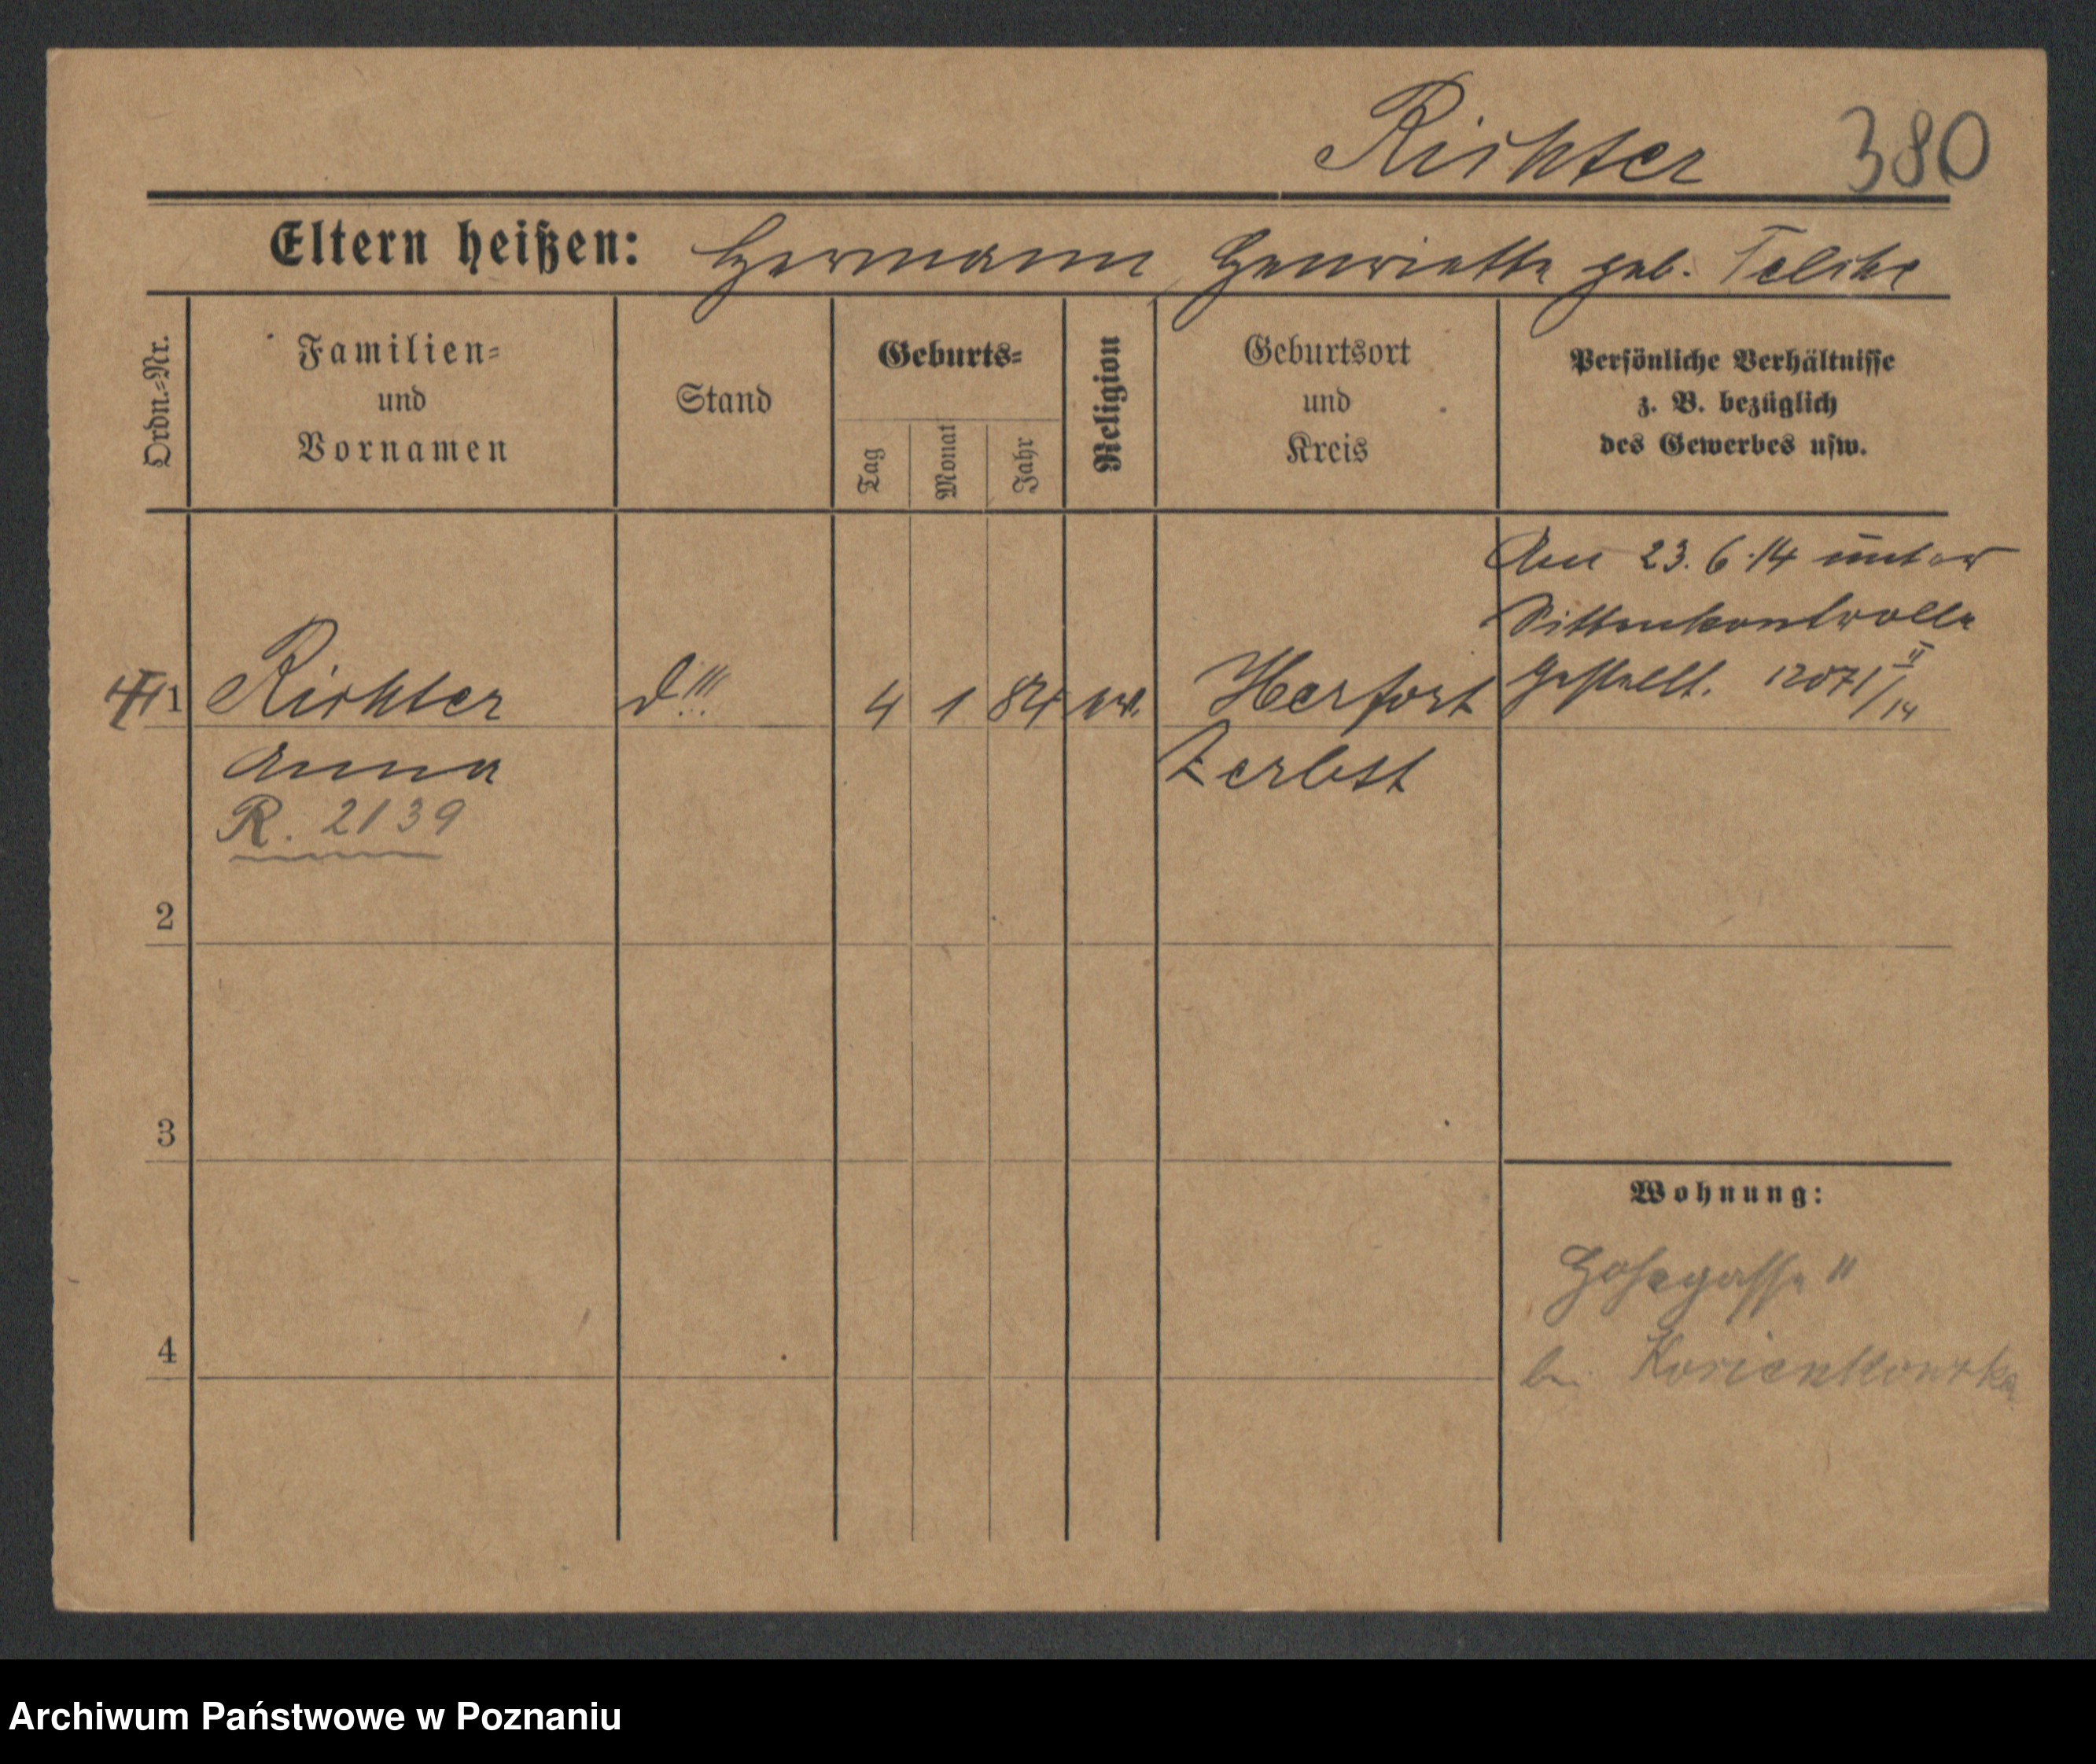 Richter 380
Eltern heißen: Hermann Henriette geb.
Ordn.-Nr.
Familien-
und
Vornamen
Stand
Geburts-
Tag
Monat
Jahr
Religion
Geburtsort
und
Kreis
Persönliche Verhältnisse
z. B. bezüglich
des Gewerbes usw.
Am 23.6.14 unter
Sittenkontrolle
gestellt. 12071 II/14
1 Richter 4 1 84 ev. Herfort
Anna Zerbst
R. 2139
2
3
4
Wohnung:
Hohegasse 11
b.
Archiwum Państwowe w Poznaniu